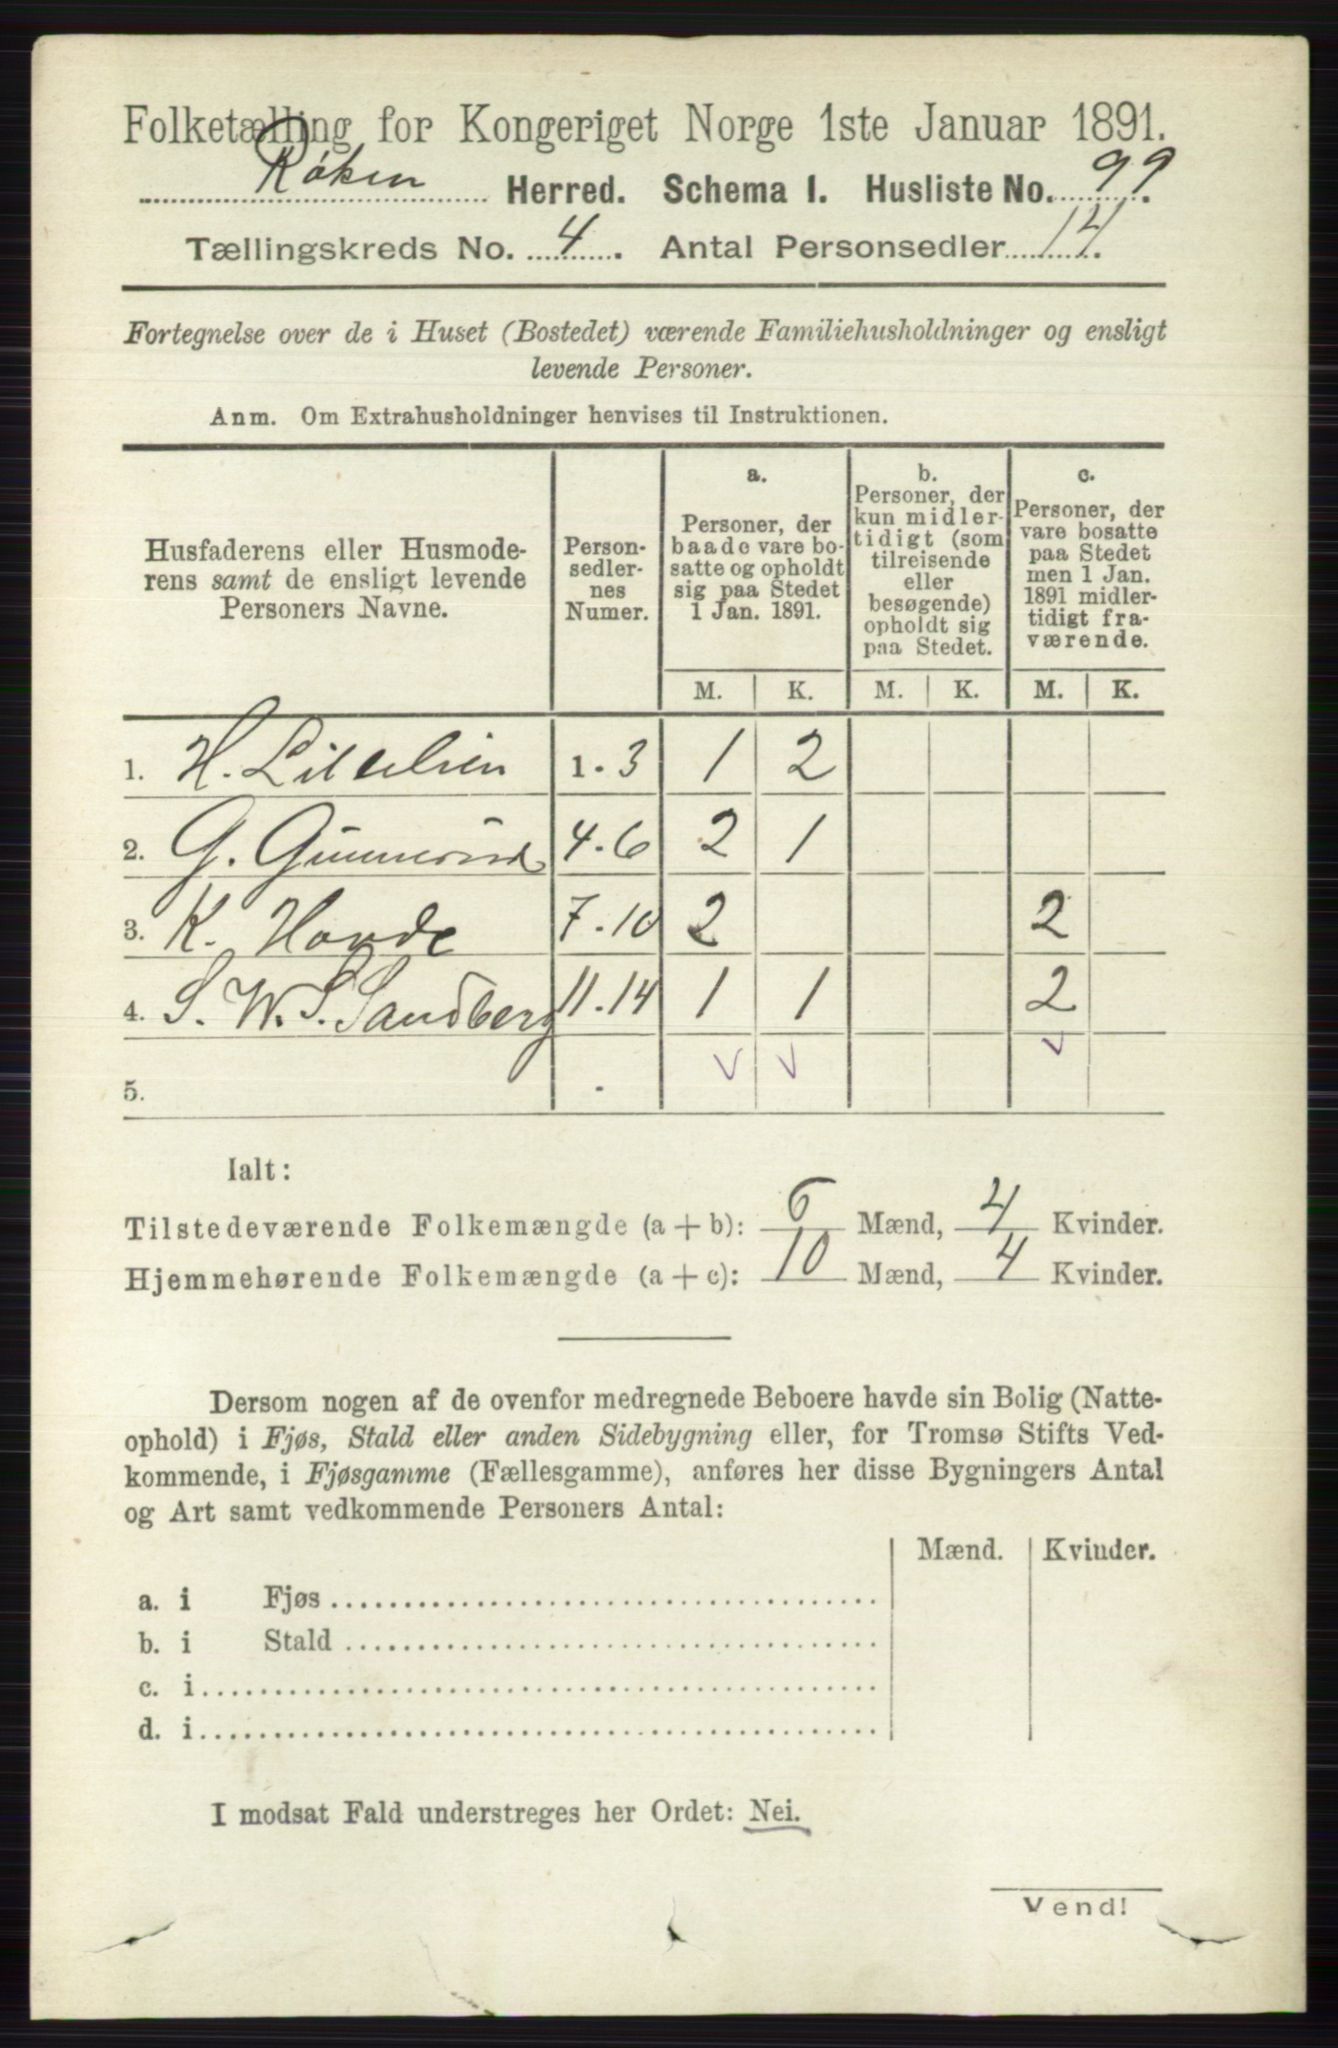 Folketælling for Kongeriget Norge 1ste Januar 1891.
Røken Herred. Schema 1. Husliste No. 99.
Tællingskreds No. 4. Antal Personsedler 14.
Fortegnelse over de i Huset (Bostedet) værende Familiehusholdninger og ensligt
levende Personer.
Anm. Om Extrahusholdninger henvises til Instruktionen.
Husfaderens eller Husmode-
rens samt de ensligt levende
Personers Navne.
Person-
sedler-
nes
Numer.
a.
Personer, der
baade vare bo-
satte og opholdt
sig paa Stedet
1 Jan. 1891.
b.
Personer, der
kun midler-
tidigt (som
tilreisende
eller
besøgende)
opholdt sig
paa Stedet.
c.
Personer, der
vare bosatte
paa Stedet
men 1 Jan.
1891 midler-
tidigt fra-
værende.
M. K. M. K. M. K.
1. H. 1 - 3 1 2
2. G. 4 - 6 2 1
3. K. Hovde 7 - 10 2 2
4. S. W. S. Sandberg 11 - 14 1 1 2
5. -
Ialt:
Tilstedeværende Folkemængde (a + b): 6 Mænd, 4 Kvinder.
Hjemmehørende Folkemængde (a + c): 10 Mænd, 4 Kvinder.
Dersom nogen af de ovenfor medregnede Beboere havde sin Bolig (Natte-
ophold) i Fjøs, Stald eller anden Sidebygning eller, for Tromsø Stifts Ved-
kommende, i Fjøsgamme (Fællesgamme), anføres her disse Bygningers Antal
og Art samt vedkommende Personers Antal:
Mænd. Kvinder.
a. i Fjøs
b. i Stald
c. i
d. i
I modsat Fald understreges her Ordet: Nei.
Vend!